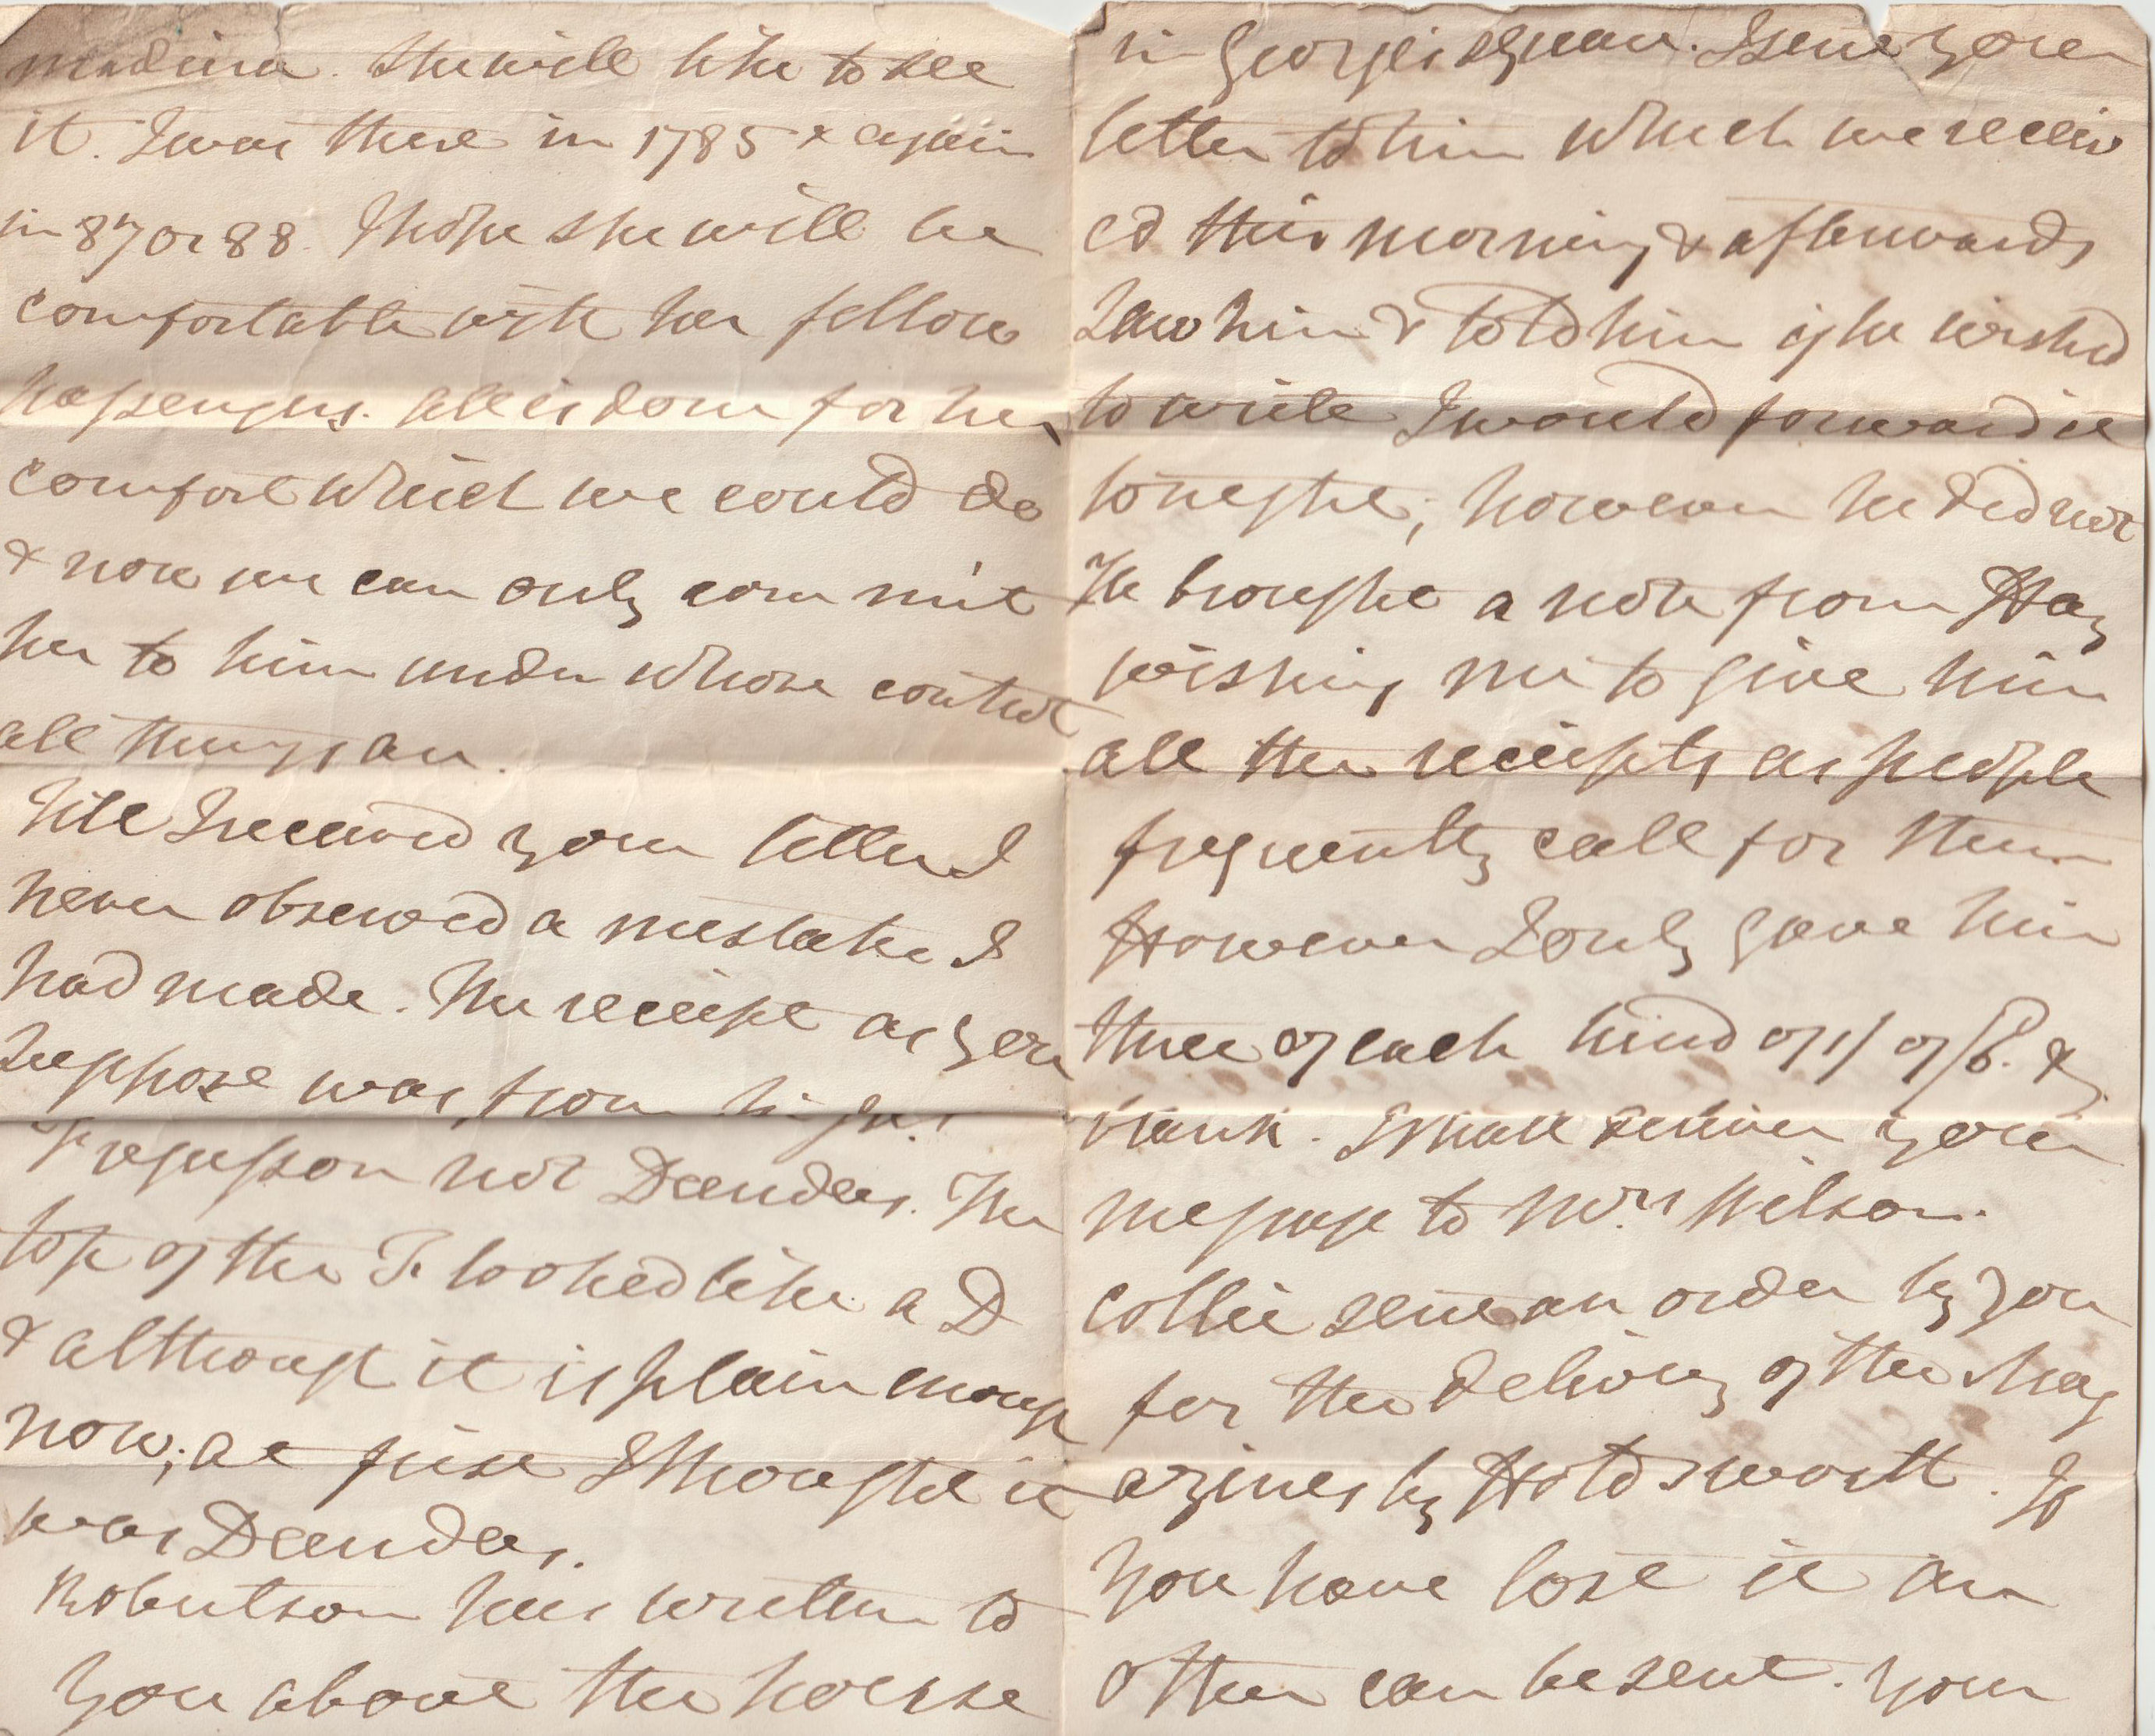 madeira. She will like to see
it. I was there in 1785 & again
in 87 or 88. I hope she will be
comfortable with her fellow
passengers. all is done for her
comfort which we could do
& now we can only commit
her to him under whose control
all things are.
Till I received your letter I
never observed a mistake I
had made. The receipt as you
suppose was from
Fergusson not Dundas. The
top of the F. looked like a D
& although it is plain enough
now; at first I thought it
was Dundas.
Robertson has written to
you about the house
in Georges square. I sent your
letter to him which we receiv
ed this morning & afterwards
saw him & told him if he wished
to write I would forward it
tonight; however he did not
He brought a note from Hay
wishing me to give him
all the receipts as people
frequently call for them
However I only gave him
three of each kind of 1/ of /6. &
blank. I shall deliver your
message to Mrs Wilson.
Collie sent an order by you
for the delivery of the Mag
azines by Holdsworth. If
you have lost it an
other can be sent. Your